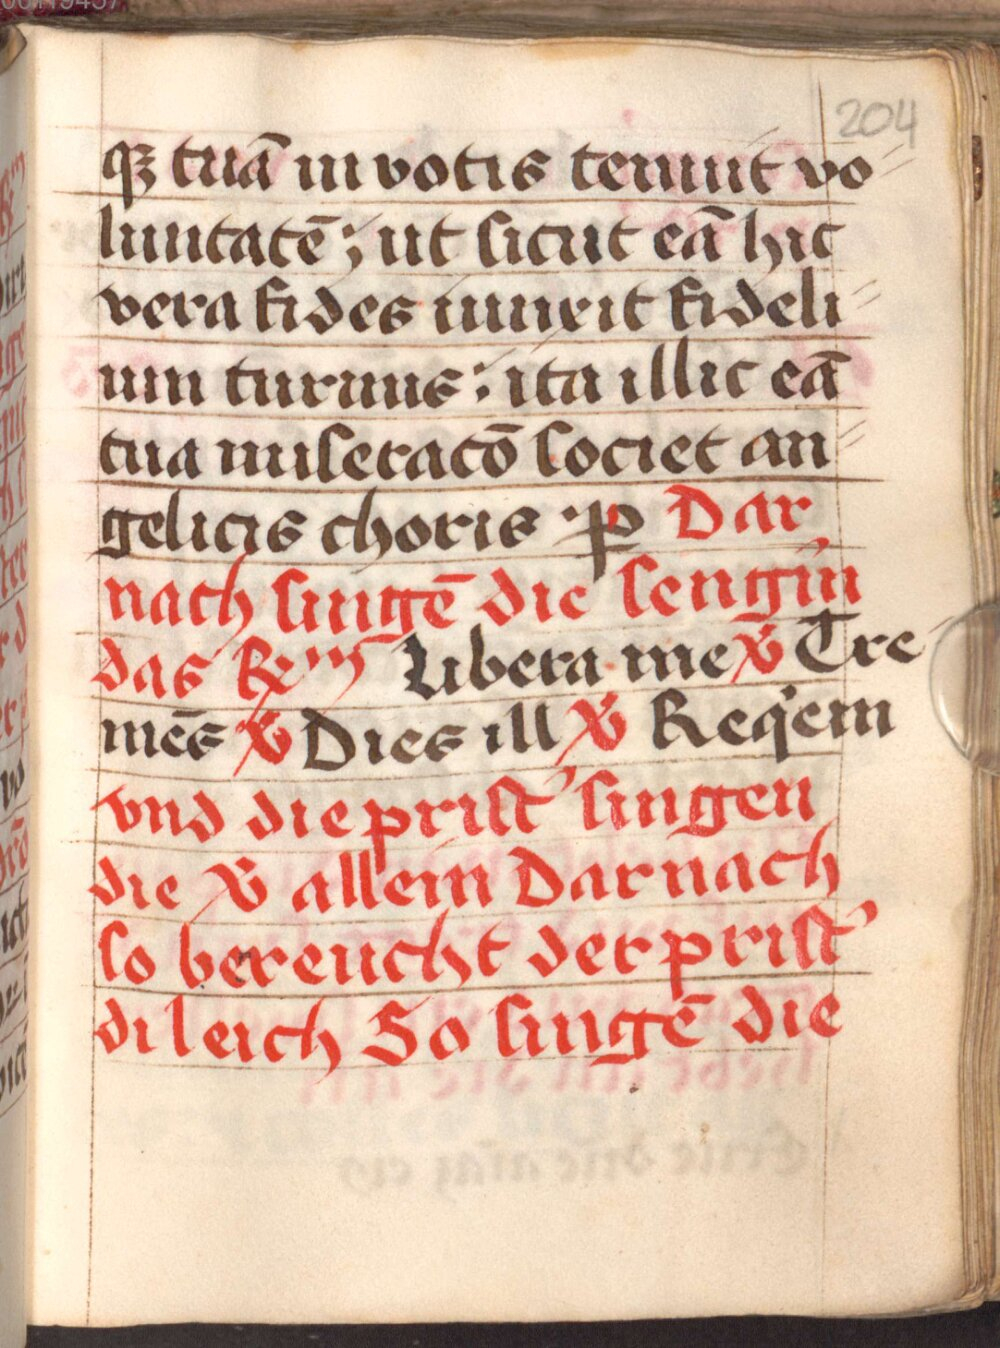 204
qꝫ tuā in votis tenuit vo⸗
luntatē; ut sicut eā hic
vera fides iunxit fideli⸗
um turmis: ita illic eā
tua miseracō societ an⸗
gelicis choris · p̄ Dar
nach singē die sengin̄
das Rm̄ Libera me ℣ Tre
mēs ℣ Dies ill ℣ Req̇em
vnd die prist' singen
die ℣ allein Darnach
so bereucht der prist'
di leich So singē die